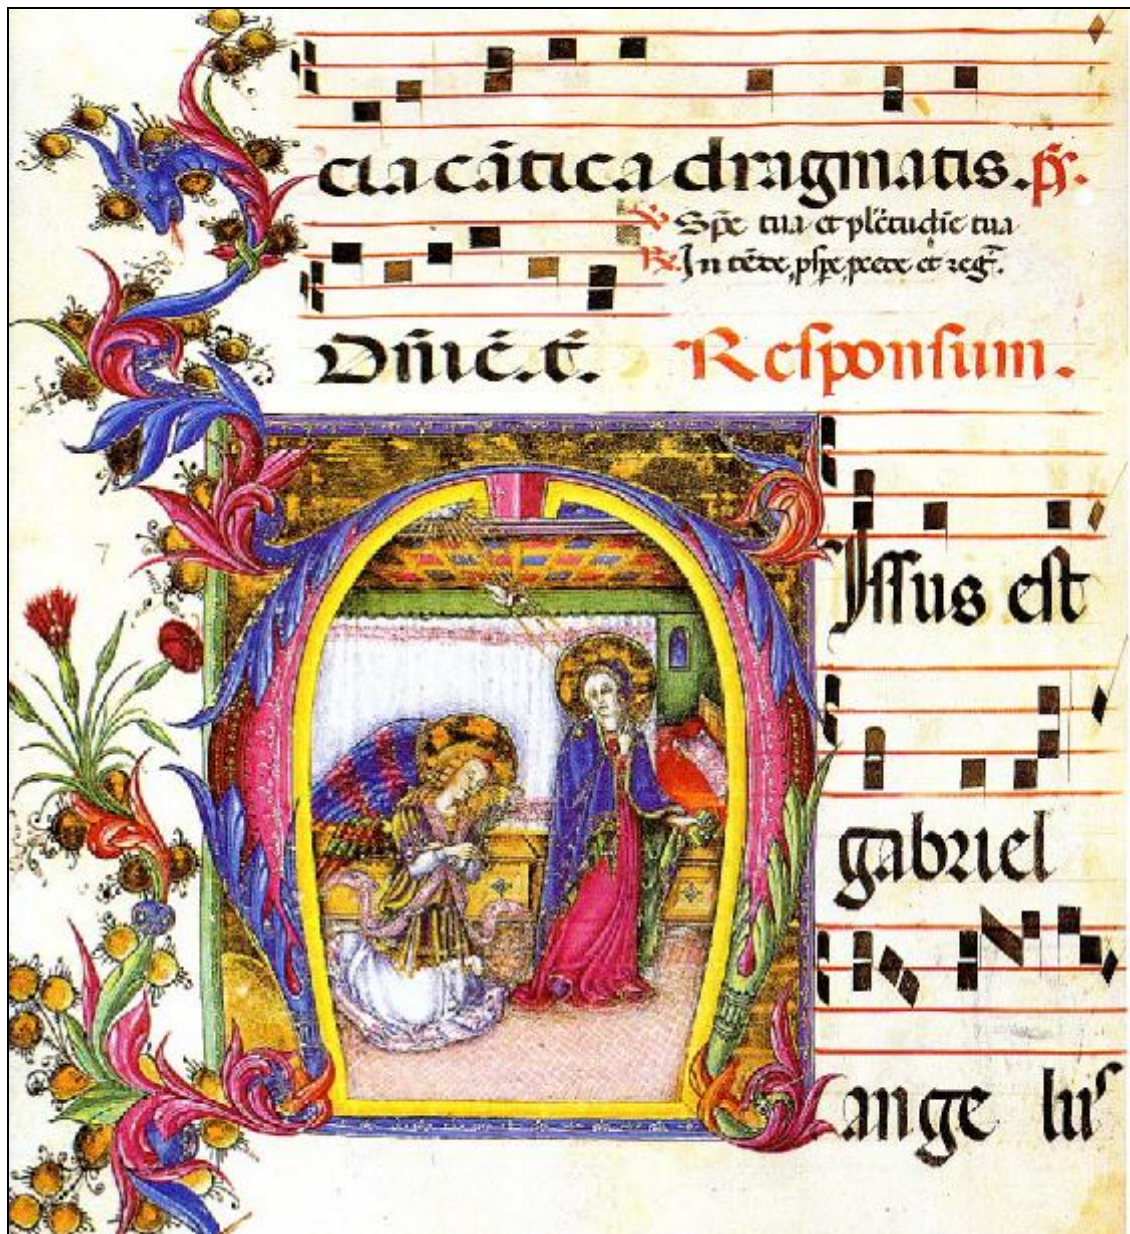 cta cãtica dragmatis. p̃s.
℣. Spe᷈ tua et pl̃c̃tudĩe tua
℟. Intẽde, ꝓspe, p̱cede et reg᷈.
Dñic̃. t᷈. Responsum.
MIssus est
gabriel
ange lus